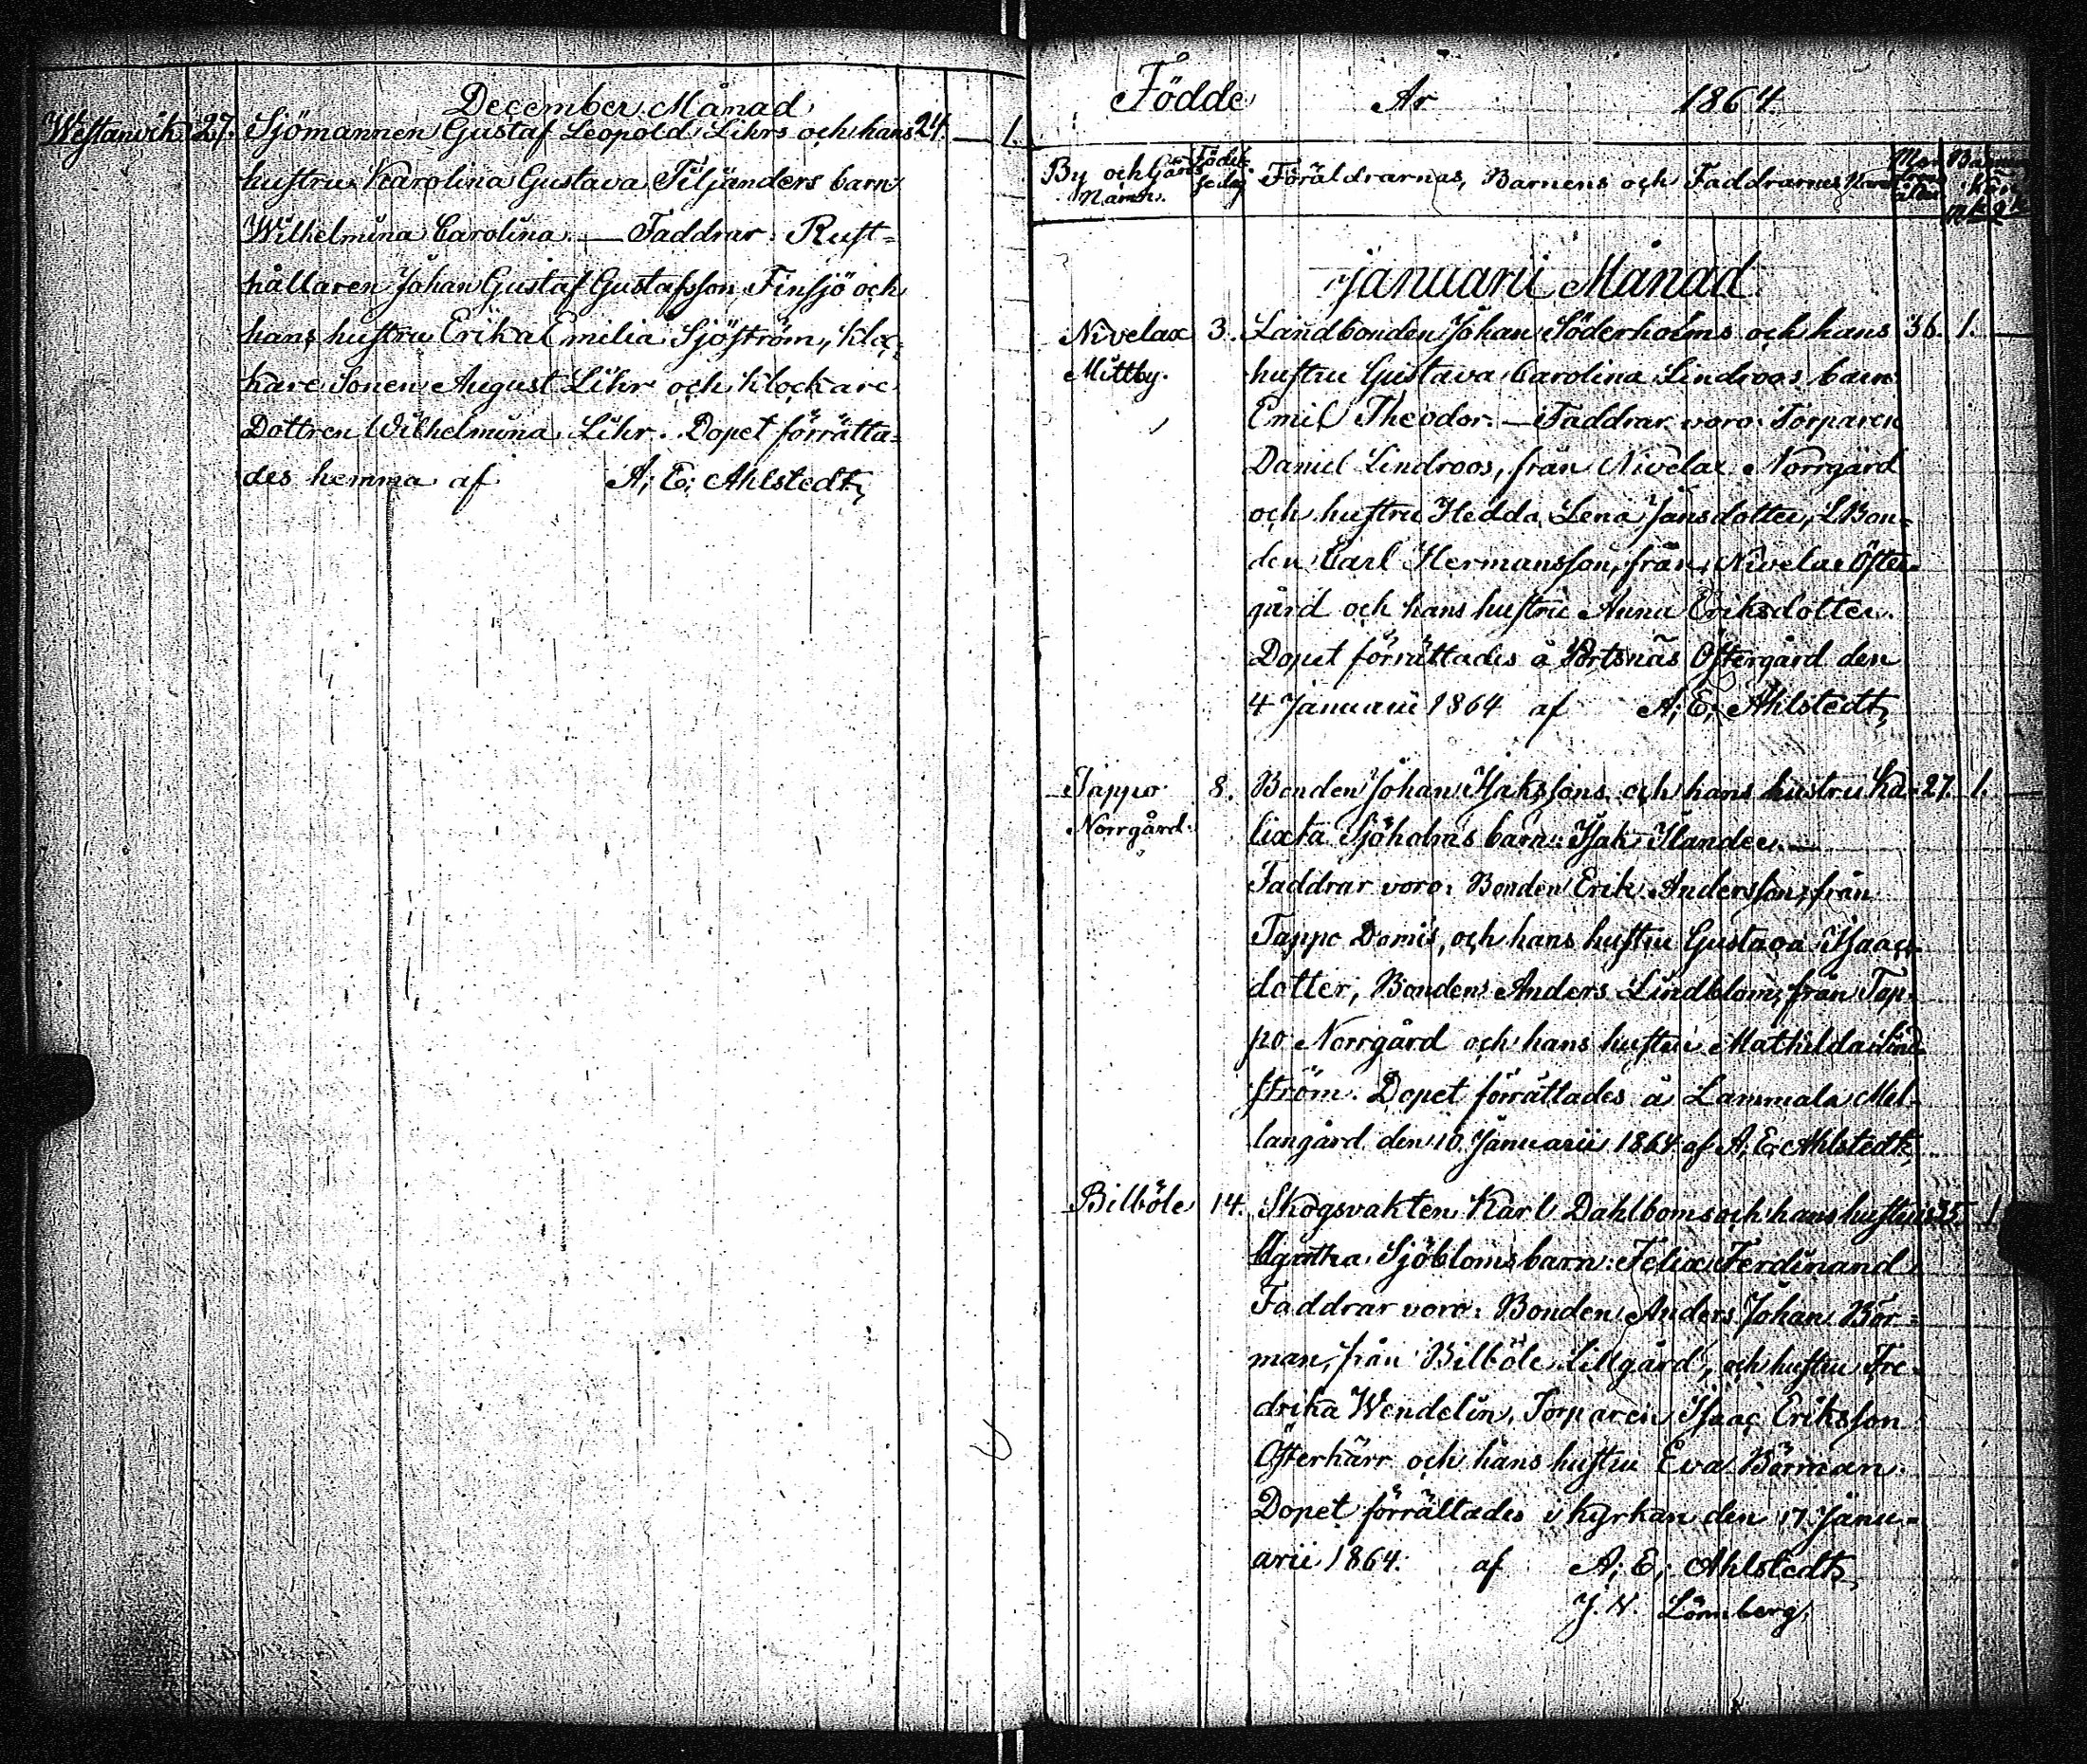 December Månad
Westanvik 27. Sjömannen Gustaf Leopold Lihrs och hans 24. — 1.
hustru Karolina Gustava Tiljanders barn
Wilhelmina Carolina. — Faddrar: Rust-
hållaren Johan Gustaf Gustafsson Finsjö och
hans hustru Erika Emilia Sjöström, Kloc-
kare Sonen August Lihr och Klockare
Dottren Wilhelmina Lihr. Dopet förrätta-
des hemma af A; E; Ahlstedt,
Födde År 1864.
By och Gårds Namn. Födel-sedag Föräldrarnas, Barnens och Faddrarnes Namn Barnens kön Mk Qk
Januarii Månad.
Nivelax 3. Landbonden Johan Söderholms och hans 36. 1. —
Mittby. hustru Gustava Carolina Lindroos barn
Emil Theodor. — Faddrar voro: Torparen
Daniel Lindroos, från Nivelax Norrgård
och hustru Hedda Lena Jansdotter, LBon-
den Carl Hermansson, från Nivelax Öster-
gård och hans hustru Anna Eriksdotter.
Dopet förrättades å Pörtsnäs Östergård den
4 Januarii 1864 af A; E; Ahlstedt,
Tappo 8. Bonden Johan Isakssons och hans hustru Ka- 27. 1. —
Norrgård. lixta Sjöholms barn: Isak Ilander. —
Faddrar voro: Bonden Erik Andersson, från
Tappo Domis, och hans hustru Gustava Isaacs-
dotter, Bonden Anders Lindblom, från Tap-
po Norrgård och hans hustru Mathilda Lind-
ström. Dopet förrättades å Lammala Mel-
langård den 10 Januarii 1864 af A; E; Ahlstedt,
Bilböle 14. Skogsvakten Karl Dahlboms och hans hustrus 35. 1.
Sjöbloms barn: Felix Ferdinand
Faddrar voro: Bonden Anders Johan Bör-
man, från Bilböle Lillgård, och hustru Fre-
drika Wendelin, Torparen Isaac Eriksson
Österkärr och hans hustru Eva Börman.
Dopet förrättades i kyrkan den 17 Janu-
arii 1864. af A; E; Ahlstedt,
J. N. Lönnberg,